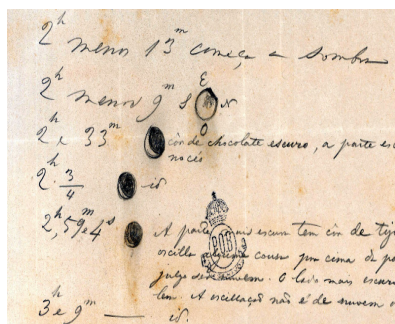 2h menos 13m começa a sombra
2h menos 9m S E N O
2h e 33m côr de chocolate escuro, a parte esc
no céo
2h 3/4 id
2h, 59m e 4s A parte mais escura tem côr de tij
oscilla
nuvem. O lado mais escur
A oscillação não é de nuvem
3h e 9m — id.